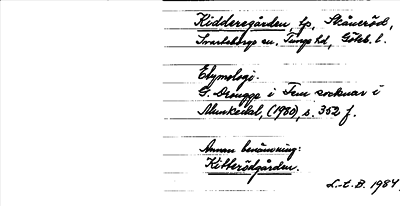 Kidderegården tp, Skåneröd,
Svarteborgs sn, Tunge hd, Göteb. l.
Etymologi.
G. Drougge i Fem socknar i
Munkedal, (1980), s. 352 f.
Annan benämning:
Kitterödgården.
L-t. B. 1984